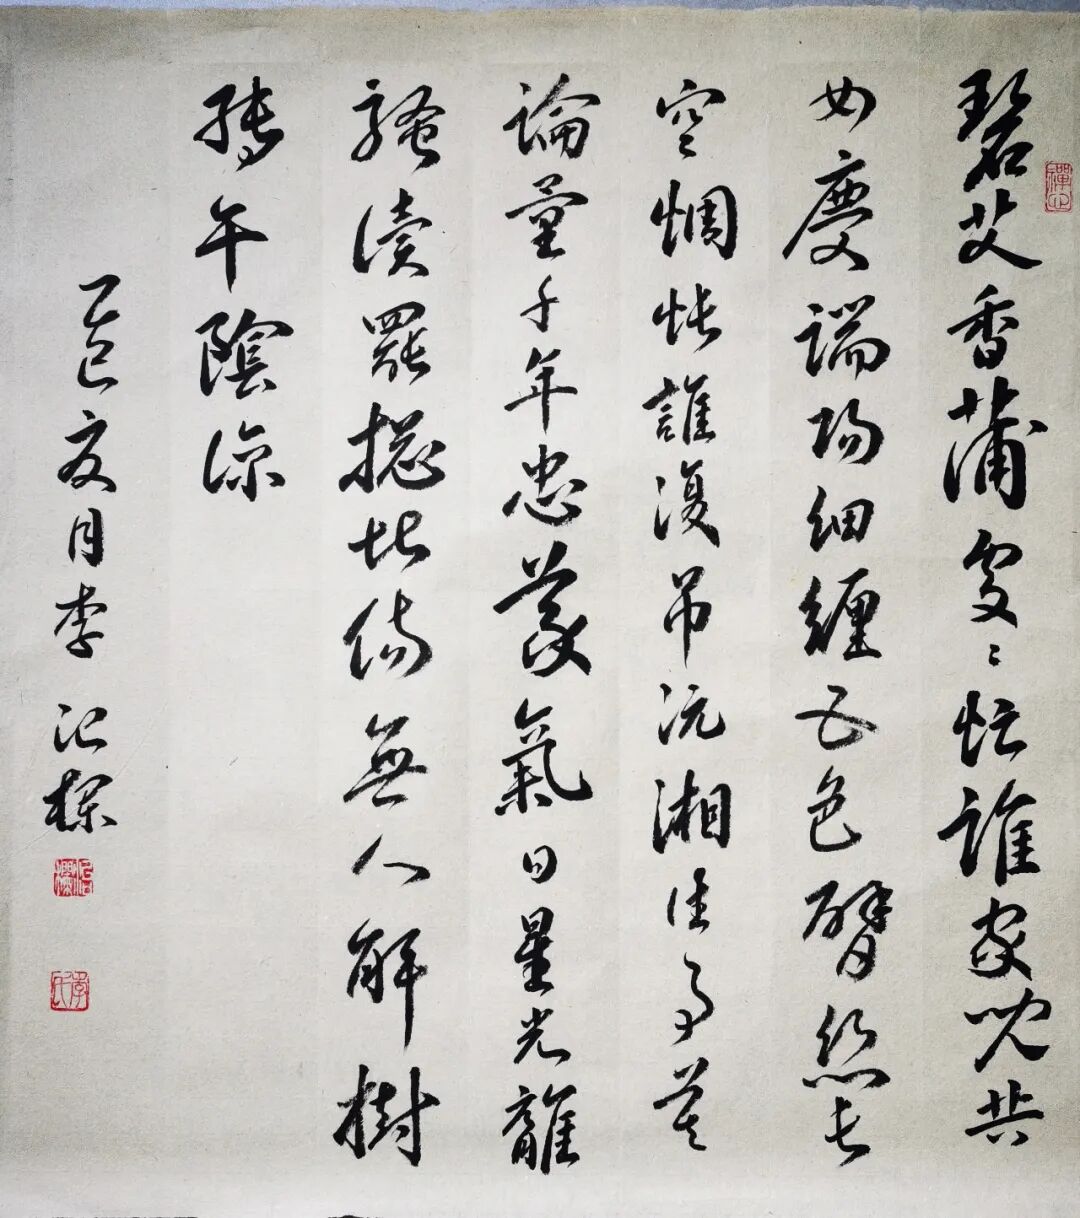 碧艾香蒲處〻忙誰家兒共
女慶端陽細纏五色臂絲長
空惆悵誰復吊沅湘往事莫
論量千年忠義氣日星光離
騷讀罷摠堪傷無人解樹
轉午陰涼
乙巳夏月李